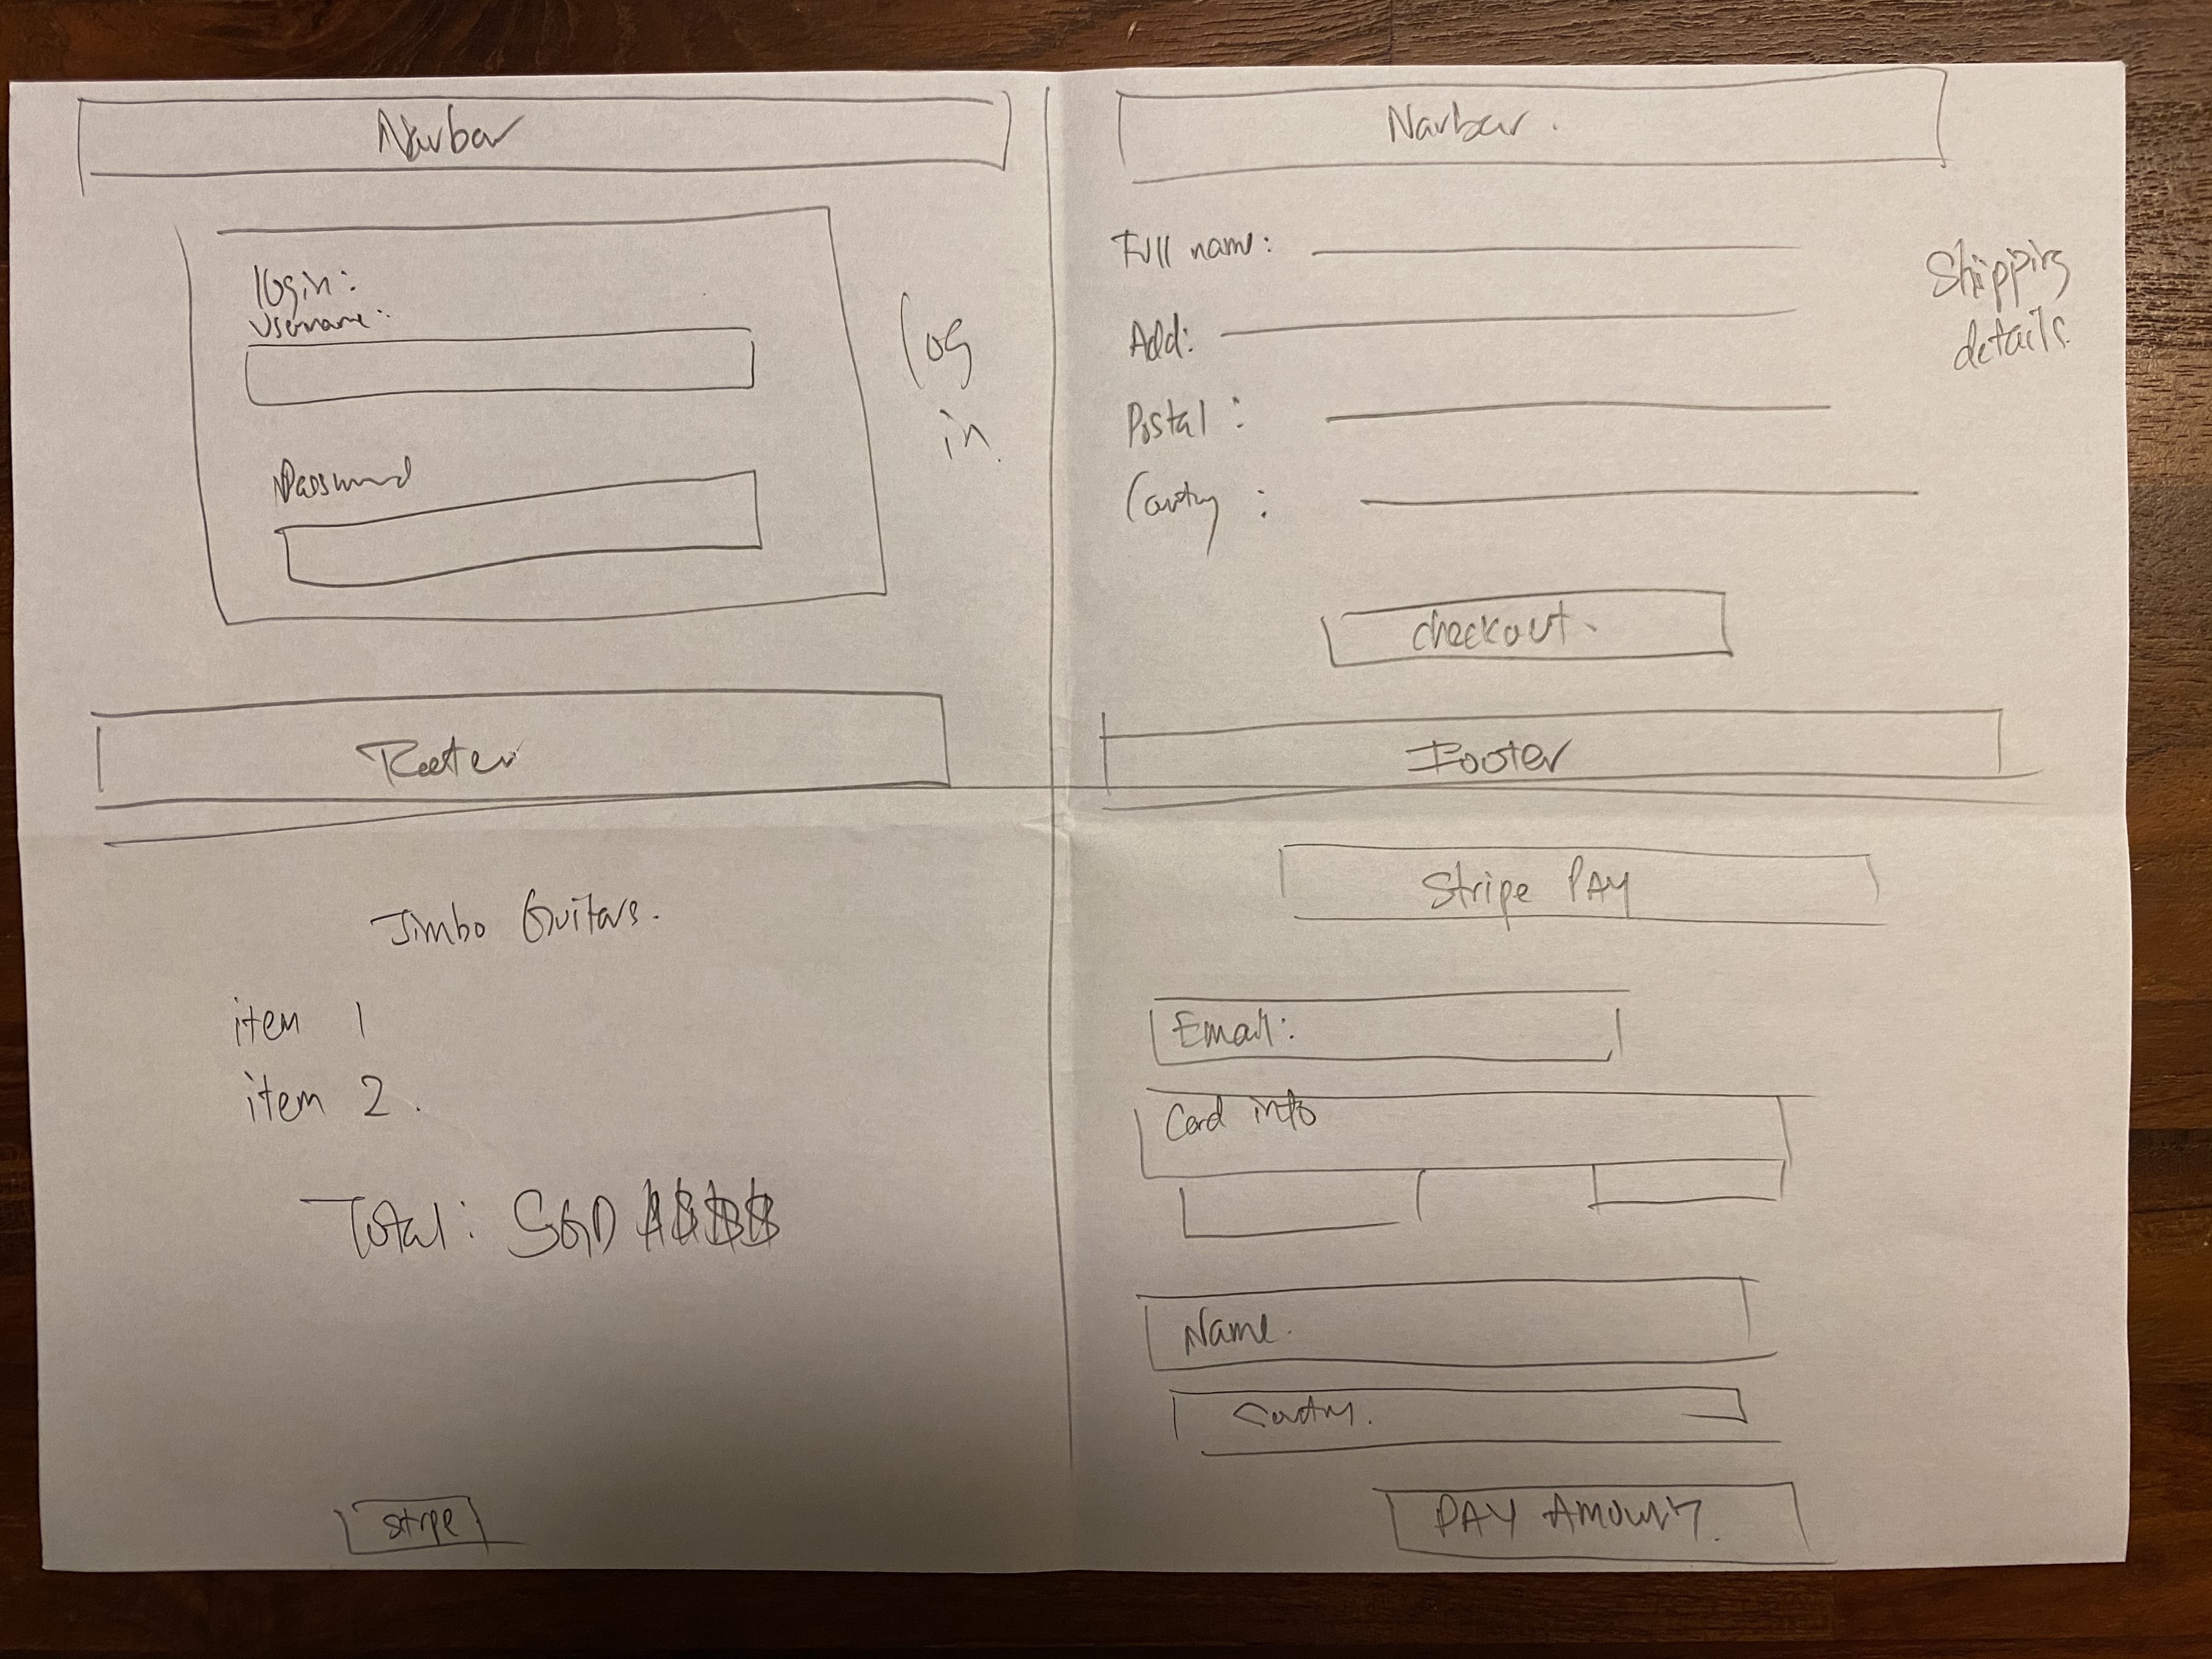 Navbar
login:
Username:
Password
Log
in.
Footer
Navbar.
Full name:
Add:
Postal:
Country:
Shipping
details.
checkout.
Footer
Jimbo Guitars.
item 1
item 2.
Total: SGD $$$$
stripe
Stripe PAY
Email:
Card info
Name.
Country.
PAY AMOUNT.